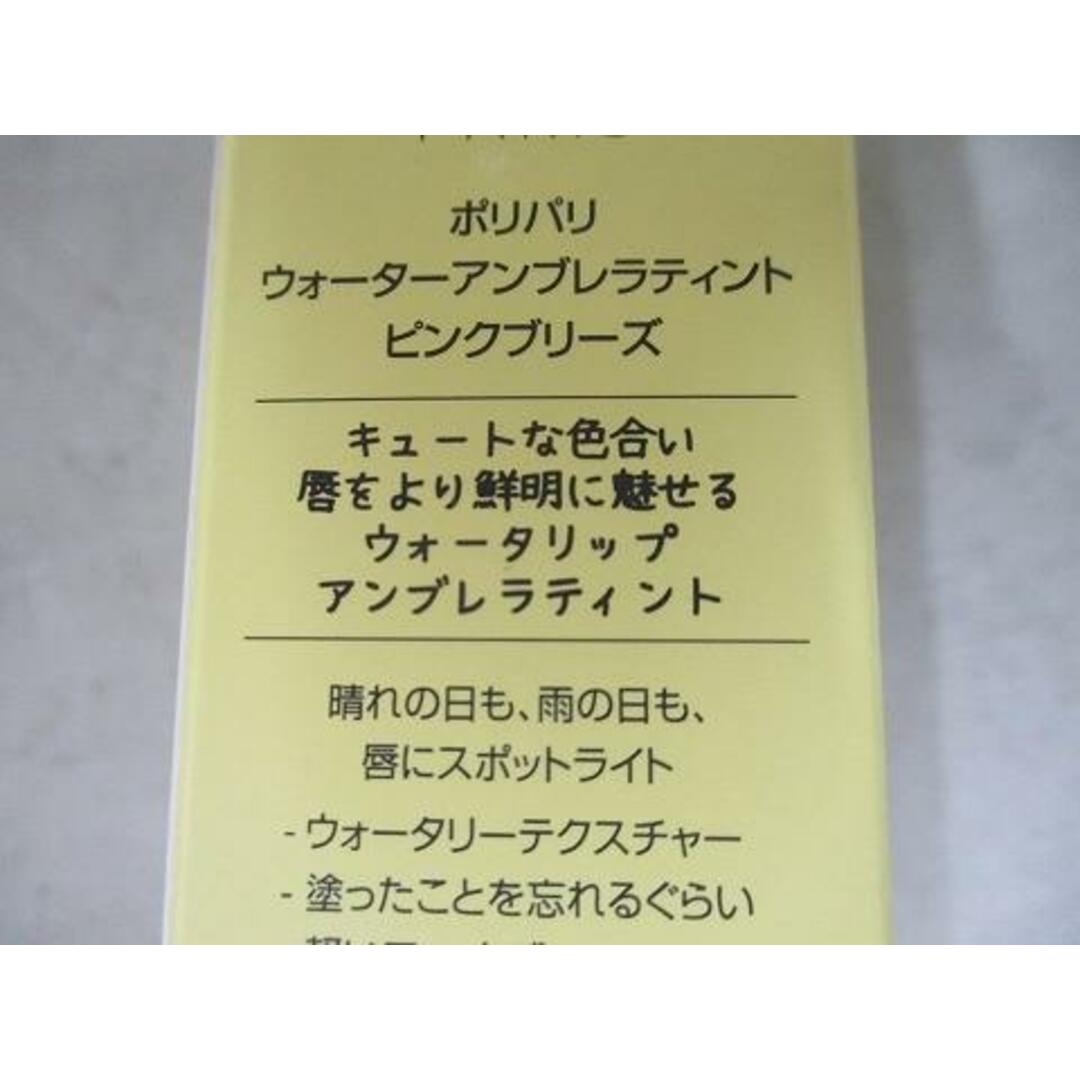 ポリパリ
ウォーターアンブレラティント
ピンクブリーズ
キュートな色合い
唇をより鮮明に魅せる
ウォータリップ
アンブレラティント
晴れの日も、雨の日も、
唇にスポットライト
- ウォータリーテクスチャー
- 塗ったことを忘れるぐらい